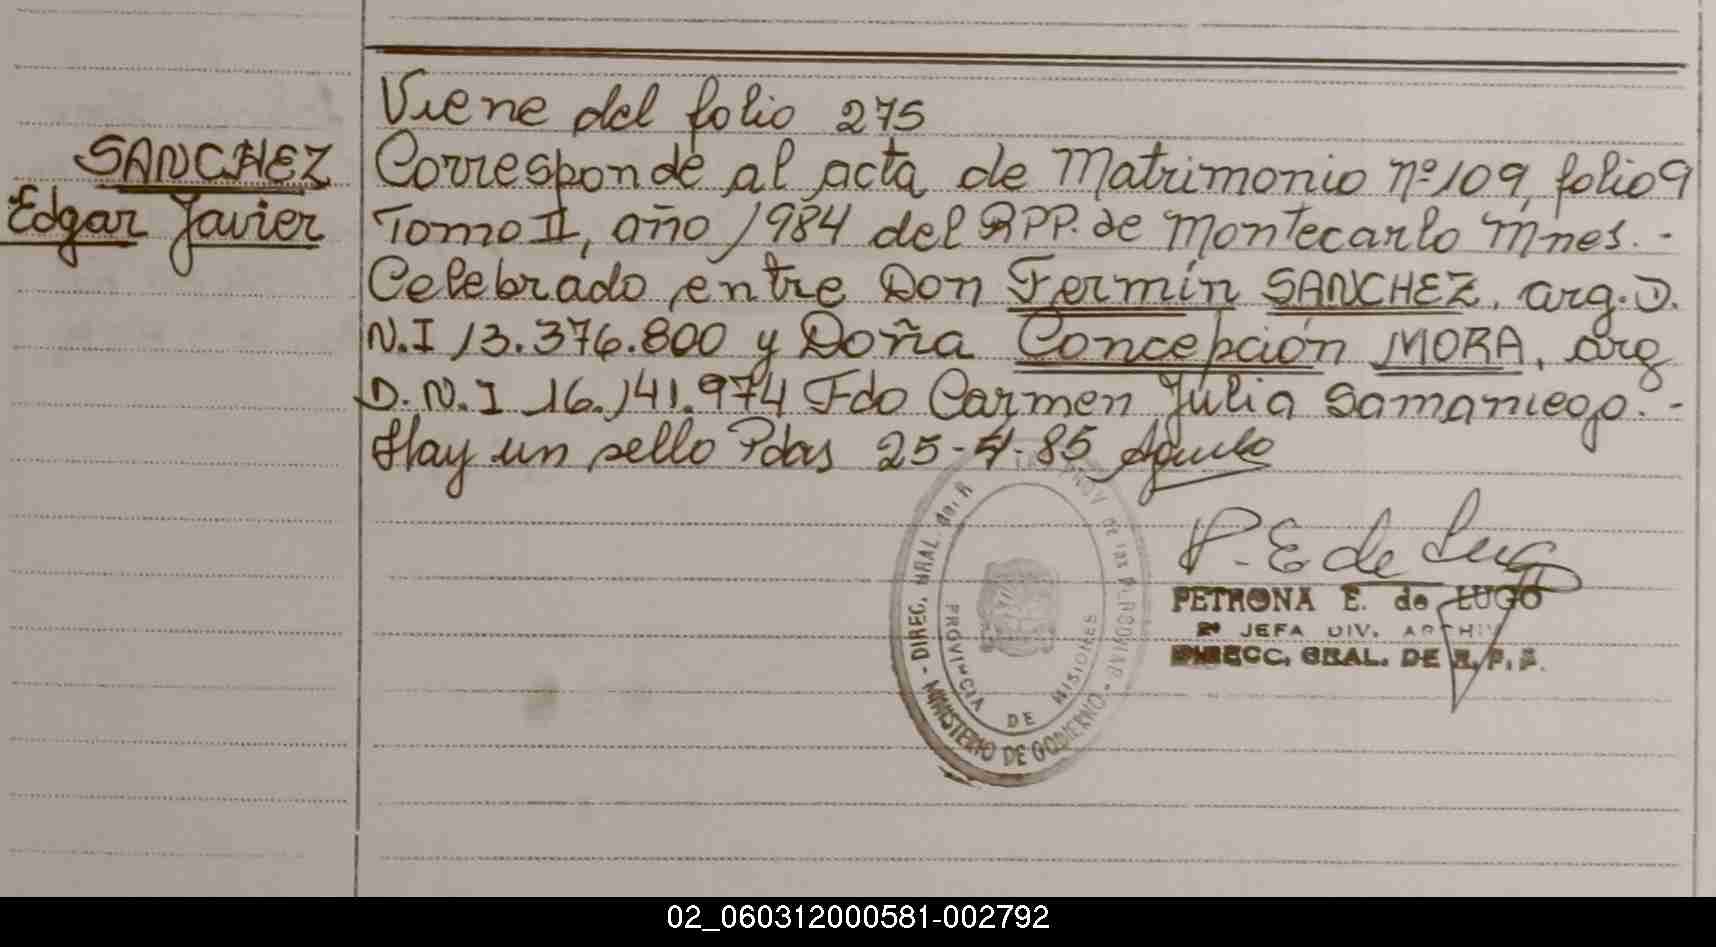 Viene del folio 275
SANCHEZ
Edgar Javier
Corresponde al acta de Matrimonio nº 109, folio 9
Tomo II, año 1984 del RPP. de Montecarlo Mnes. -
Celebrado entre Don Fermín SANCHEZ, arg. D.
N.I 13.376.800 y Doña Concepción MORA, arg
D.N.I 16.141.974 Fdo Carmen Julia Samaniego. -
Hay un sello Pdas 25-4-85
P. E de Lugo
PETRONA E. de LUGO
2ª JEFA DIV. ARCHIV
DIRECC. GRAL. DE R. P. P.
DIREC. GRAL. del R PROV DE las PERSONAS
- MINISTERIO DE GOBIERNO -
PROVINCIA DE MISIONES
02_060312000581-002792